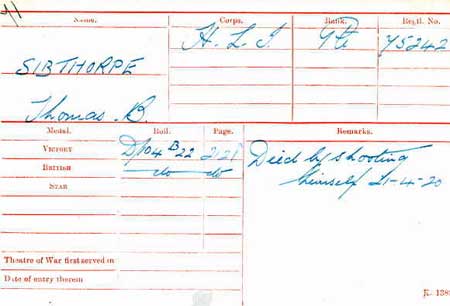 Name. Corps. Rank. Regtl. No.
SIBTHORPE H.L.I. Pte 75242
Thomas B.
Medal. Roll. Page. Remarks.
VICTORY D/104 B 22 2221 Died by shooting
BRITISH do do himself 21-4-20
STAR
Theatre of War first served in
Date of entry therein
K. 138